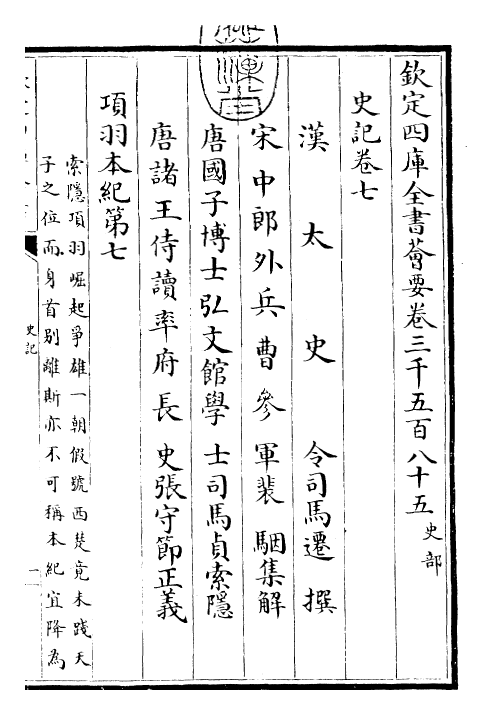 欽定四庫全書薈要卷三千五百八十五 史部
史記卷七
漢太史令司馬遷撰
宋中郎外兵曹參軍裴駰集解
唐國子博士弘文館學士司馬貞索隱
唐諸王侍讀率府長史張守節正義
項羽本紀第七
索隱項羽崛起爭雄一朝假號西楚竟未踐天
子之位而身首别離斯亦不可稱本紀宜降為
史記
一